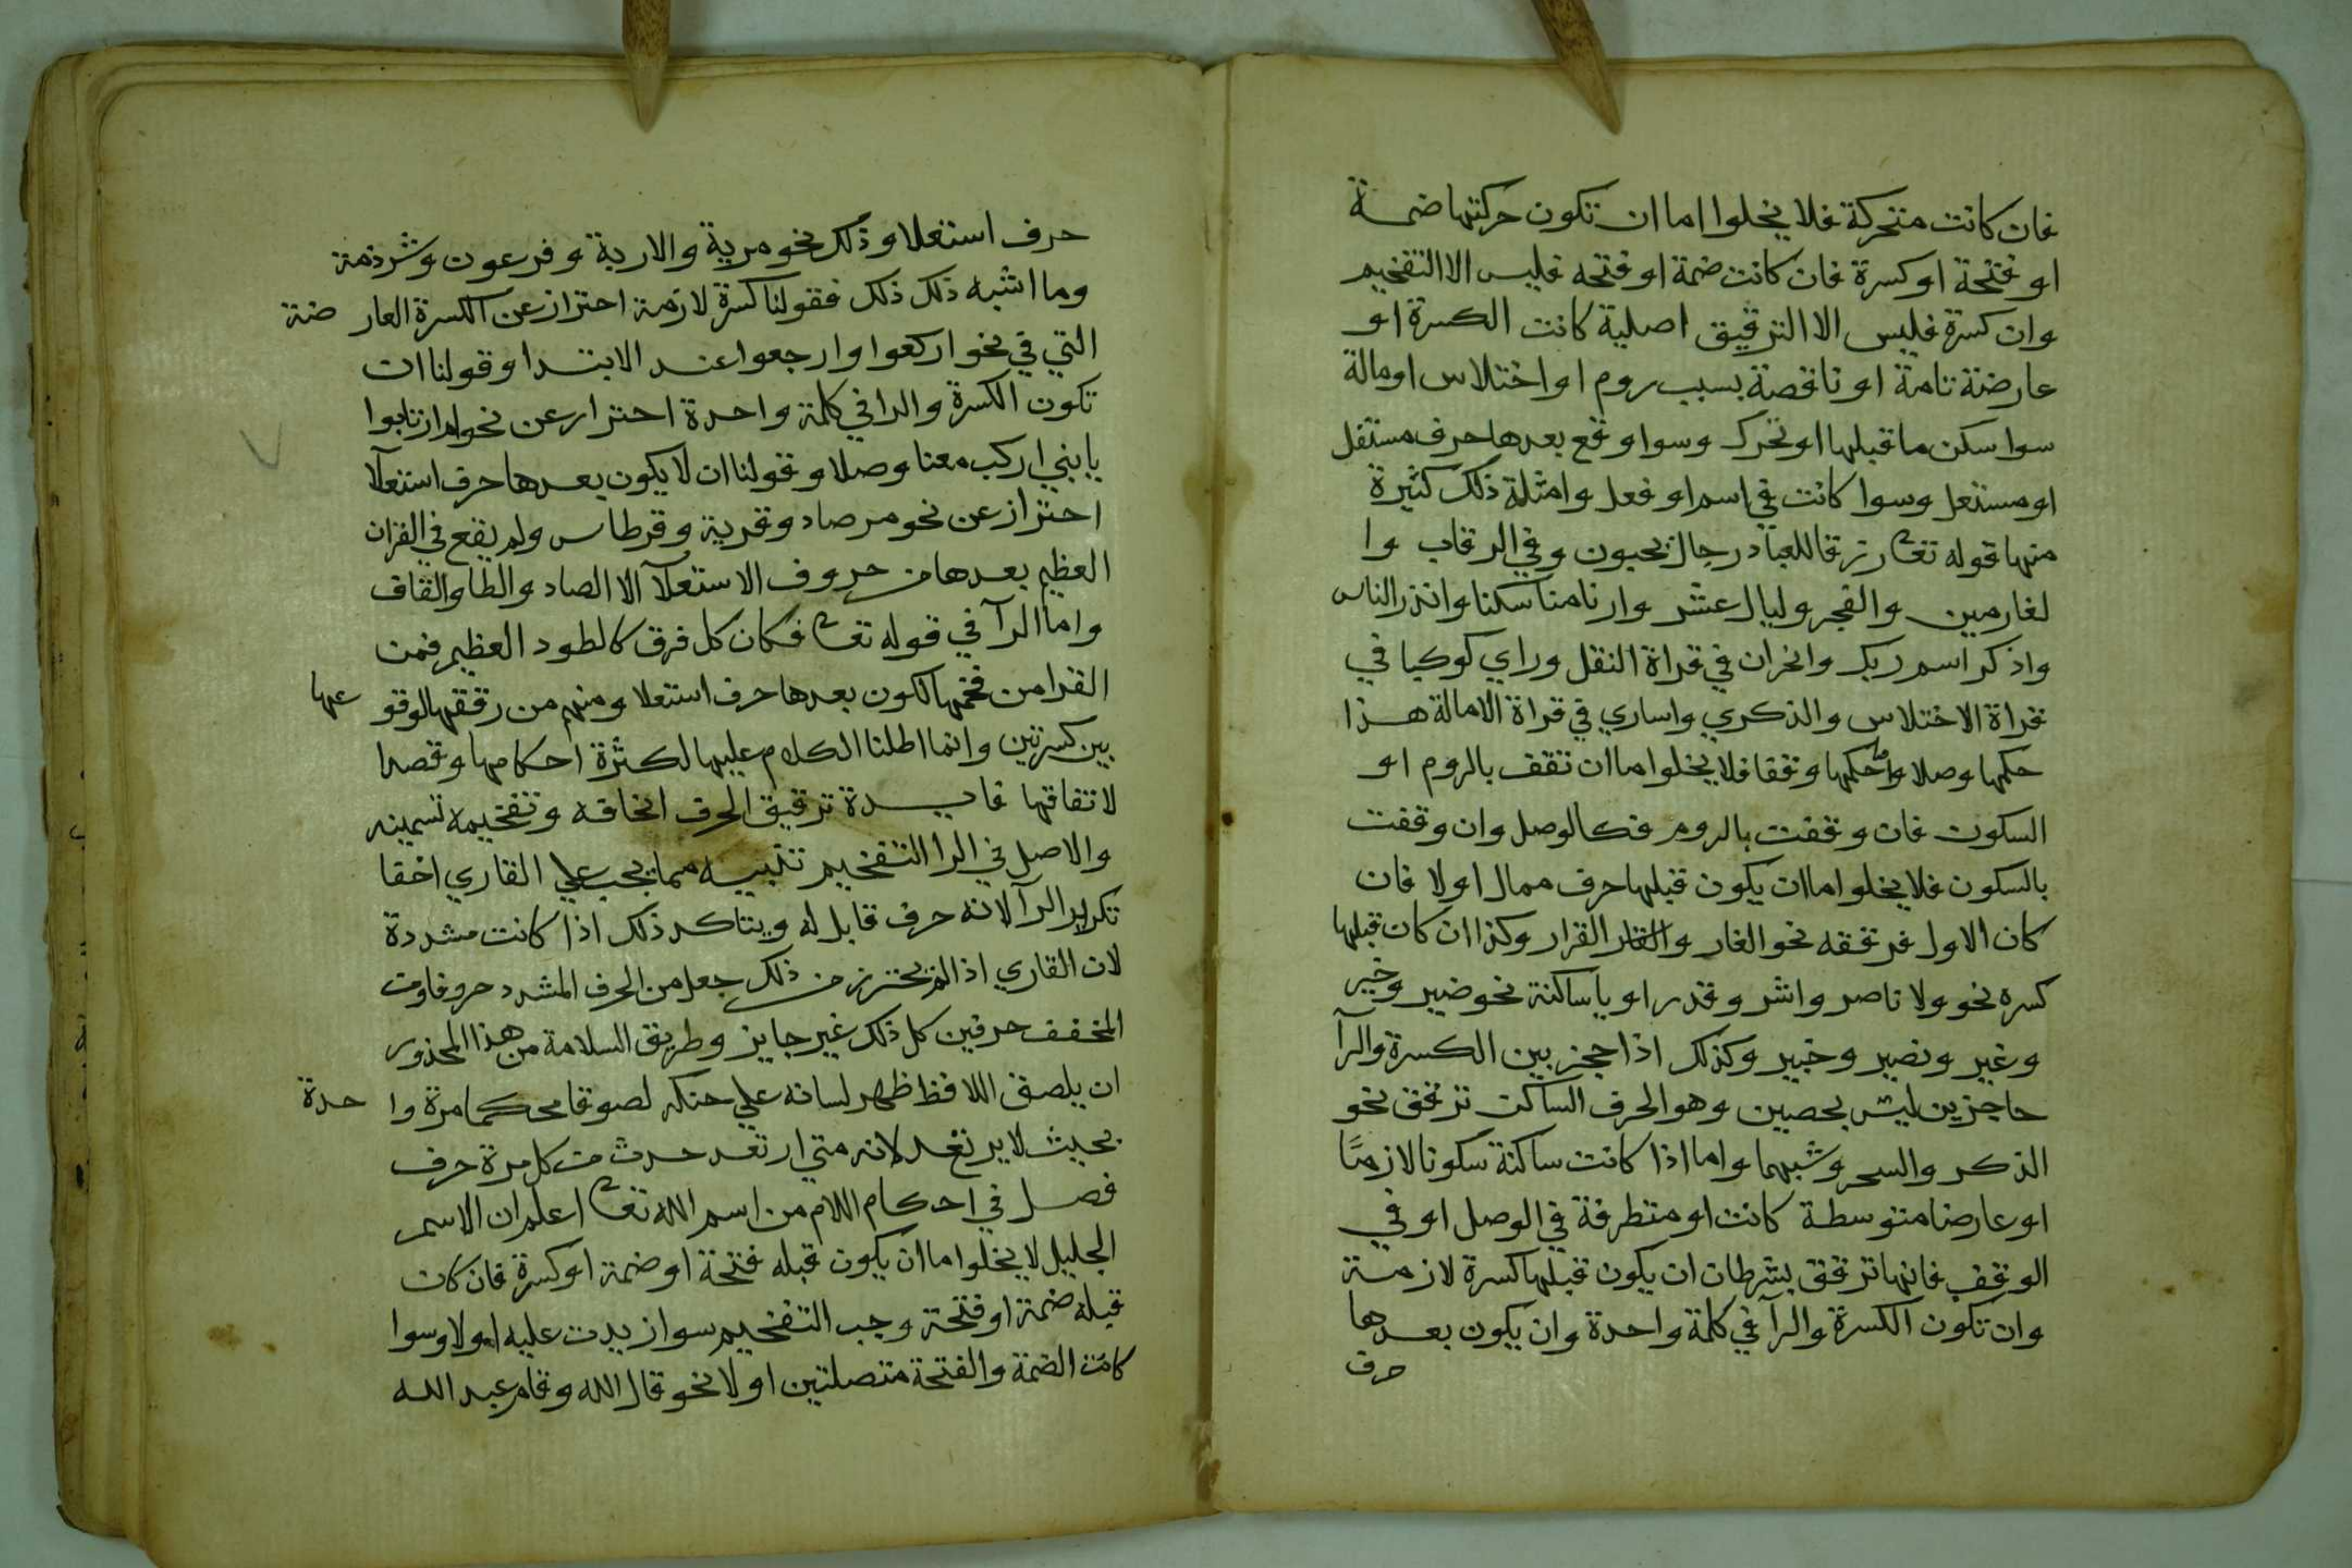 فان كانت متحركة فلا يخلوا اما ان تكون حركتها ضمة
او فتحة او كسرة فان كانت ضمة او فتحه فليس الا التفخيم
وان كسرة فليس الا الترقيق اصلية كانت الكسرة او
عارضة تامة او ناقصة بسبب روم او اختلاس او مالة
سوا سكن ما قبلها او تحرك وسوا وقع بعدها حرف مستفل
او مستعل وسوا كانت في اسم او فعل وامثلة ذلك كثيرة
منها قوله تعا رزقا للعباد رجال يحبون وفي الرقاب وا
لغارمين والفجر وليال عشر وارنا مناسكنا وانذر الناس
واذكر اسم ربك وانحران في قراة النقل وراي كوكبا في
قراة الاختلاس والذكري واساري في قراة الامالة هذا
حكمها وصلا واما حكمها وقفا فلا يخلوا ما ان تقف بالروم او
السكون فان وقفت بالروم فكالوصل وان وقفت
بالسكون فلا يخلو اما ان يكون قبلها حرف ممال اولا فان
كان الاول فرققه نحو الغار القرار وكذا ان كان قبلها
كسره نحو ولا ناصر واشر وقدر او يا ساكنة نحو ضير وخير
وغير ونصير وخبير وكذلك اذا حجز بين الكسرة والرآ
حاجزين ليس بحصين وهو الحرف الساكن ترقق نحو
الذكر والسحر وشبهما واما اذا كانت ساكنة سكونا لازمًا
او عارضا متوسطة كانت او متطرفة في الوصل او في
الوقف فانها ترقق بشرطان ان يكون قبلها كسرة لازمة
وان تكون الكسرة والرآ في كلمة واحدة وان يكون بعدها
حرف
حرف استعلا وذلك نحو مرية والاربة وفرعون وشرذمة
وما اشبه ذلك ذلك فقولنا كسرة لازمة احتراز عن الكسرة العار ضة
التي في نحو اركعوا وارجعوا عند الابتدا وقولنا ان
تكون الكسرة والرا في كلمة واحدة احتراز عن نحو ام ارتابوا
يا بني اركب معنا وصلا وقولنا ان لا يكون بعدها حرف استعلآ
احتراز عن نحو مرصاد وقرية وقرطاس ولم يقع في القران
العظيم بعدها من حروف الاستعلآ الا الصاد والطا والقاف
واما الرآ في قوله تعا فكان كل فرق كالطود العظيم فمن
القرا من فخمها لكون بعدها حرف استعلا ومنهم من رققها لوقو عها
بين كسرتين وانما اطلنا الكلام عليها لكثرة احكامها وقصدا
لاتفاقها فايدة ترقيق الحرف انحافه وتفخيمه تسمينه
والاصل في الرا التفخيم تنبيه مما يجب علي القاري اخفا
تكرير الرآ لانه حرف قابل له ويتاكد ذلك اذا كانت مشددة
لان القاري اذا لم يحترز من ذلك جعل من الحرف المشدد حروفا ومن
المخفف حرفين كل ذلك غير جايز وطريق السلامة من هذا المحذور
ان يلصق اللافظ ظهر لسانه علي حنكه لصوقا محكما مرة وا حدة
بحيث لا يرتعد لانه متي ارتعد حدث من كل مرة حرف
فصل في احكام اللام من اسم الله تعا اعلم ان الاسم
الجليل لا يخلوا ما ان يكون قبله فتحة او ضمة او كسرة فان كان
قبله ضمة او فتحة وجب التفخيم سوا زيدت عليه ام لا وسوا
كانت الضمة والفتحة متصلتين او لا نحو قال الله وقام عبد الله